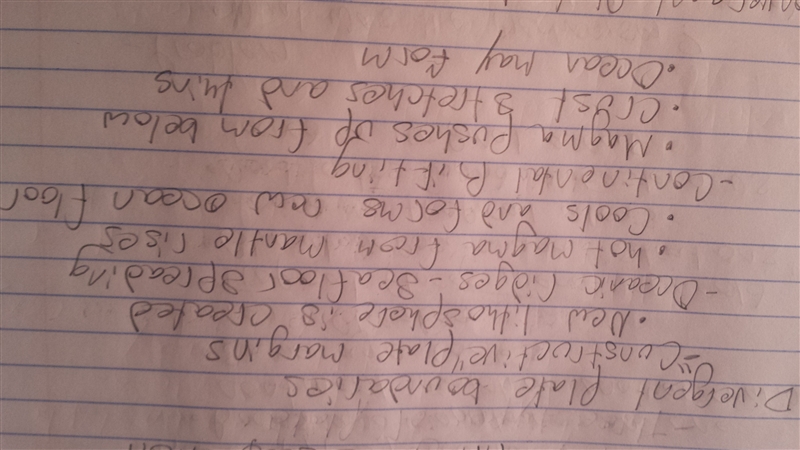 Divergent plate boundaries
-"Constructive" plate margins
• New lithosphere is created
- Oceanic ridges - Seafloor spreading
• hot magma from mantle rises
• Cools and forms new ocean floor
- Continental Rifting
• Magma pushes up from below
• Crust stretches and thins
• Ocean may form